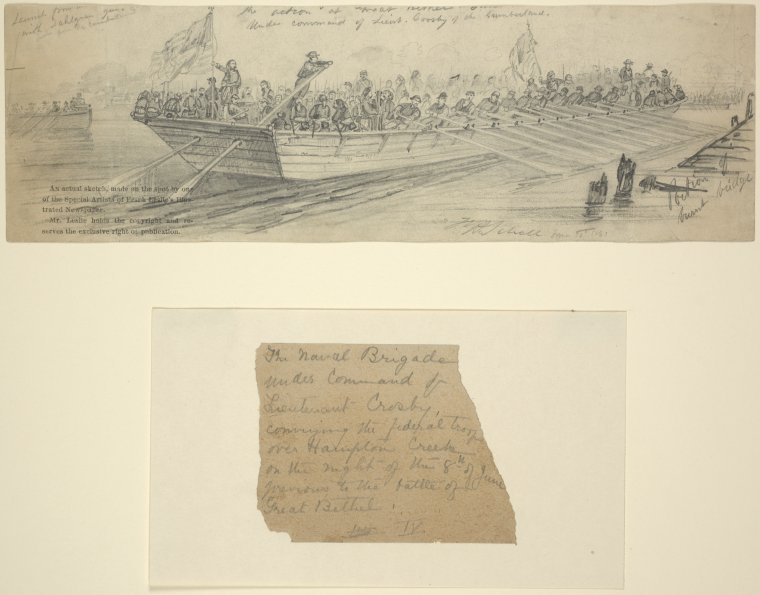 the action at
Under command of Lieut. Crosby of the Cumberland.
An actual sketch, made on the spot by one
of the Special Artists of Frank Leslie's Illus-
trated Newspaper.
Mr. Leslie holds the copyright and re-
serves the exclusive right of publication.
Portion of
burnt bridge
The Naval Brigade
under command of
Lieutenant Crosby,
conveying the federal troops
over Hampton Creek
on the night of the 8th of June
previous to the battle of
Great Bethel.
IV